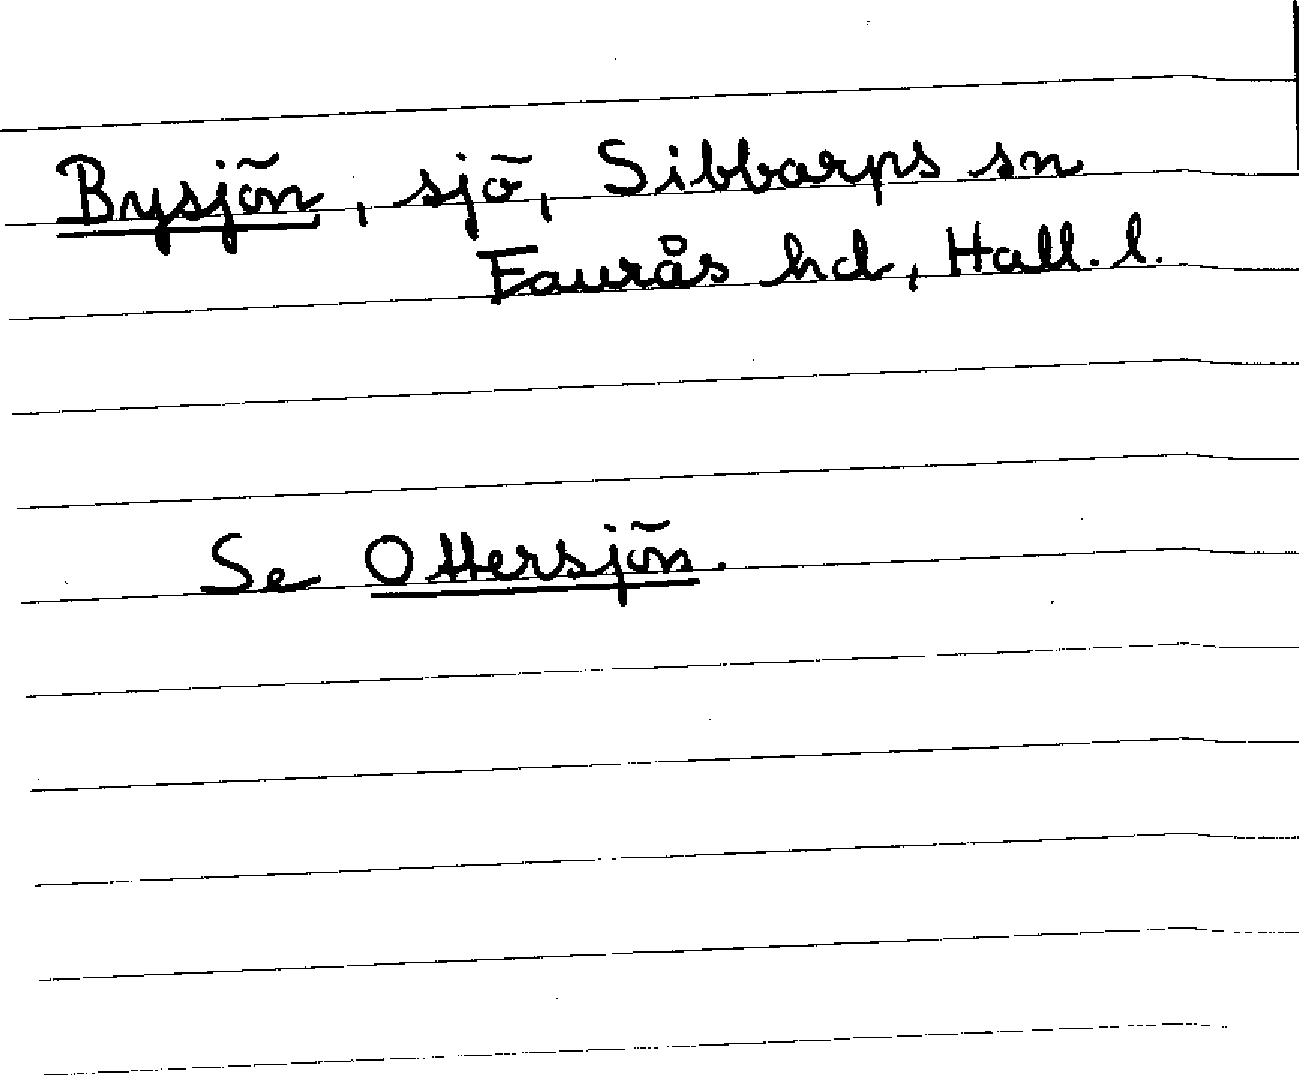 Bysjön, sjö, Sibbarps sn
Faurås hd, Hall. l.
Se Ottersjön.